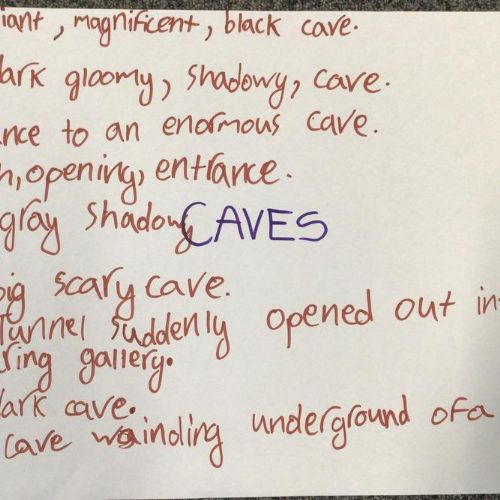 iant, magnificent, black cave.
ark gloomy, shadowy, cave.
nce to an enormous cave.
n, opening, entrance.
gray shadowy CAVES
big scary cave.
Tunnel suddenly opened out int
ring gallery.
dark cave.
cave wainding underground of a